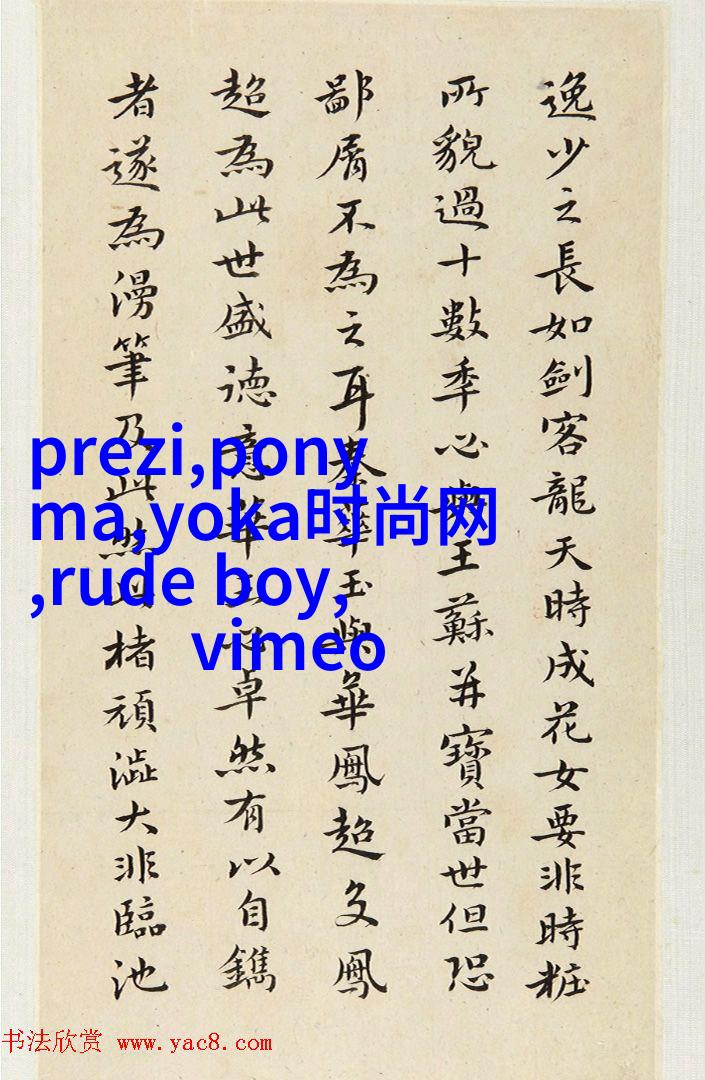 逸少之長如劍客龍天時成花女要非時粧
所貌過十數季必與王蘇并寶當世但恐
鄙屑不為之耳秦華玉與華鳳超鳳
超為此世盛德意華玉心卓然有以自鐫
者遂為漫筆及此然此楮頑澁大非臨池
prezi,pony
ma,yoka时尚网
,rude boy,
vimeo
书法欣赏 www.yac8.com